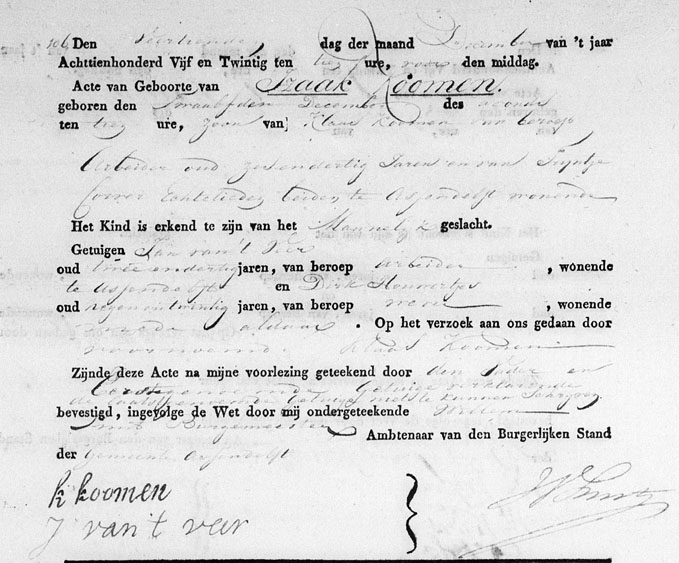 106 Den Veertienden dag der maand December van 't jaar
Achttienhonderd Vijf en Twintig ten ure, voor den middag.
Acte van Geboorte van Izaak Koomen.
geboren den twaalfden December des avonds
ten ure, zoon van Klaas Koomen van beroep
Arbeider oud zesendertig Jaren en van Trijntje
Echtelieden beiden te Assendelft wonende
Het Kind is erkend te zijn van het Mannelijk geslacht.
Getuigen Jan van 't Veer
oud twee en dertig jaren, van beroep arbeider, wonende
te Assendelft en Dirk
oud negenentwintig jaren, van beroep, wonende
aldaar. Op het verzoek aan ons gedaan door
voornoemd Klaas Koomen
Zijnde deze Acte na mijne voorlezing geteekend door den Vader en
Eerstgenoemde Getuige verklarende
de laatstgenoemde getuige niet te kunnen Schrijven
bevestigd, ingevolge de Wet door mij ondergeteekende Willem
Smit Burgemeester
Ambtenaar van den Burgerlijken Stand
der gemeente Assendelft
k koomen
J van't veer